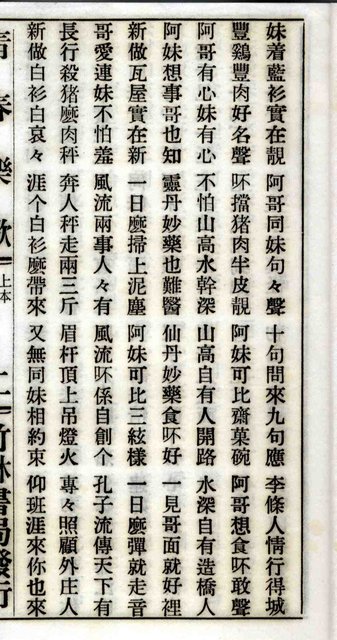 妹着藍衫實在靚 阿哥同妹句々聲 十句問來九句應 李條人情行得城
豐鷄豐肉好名聲 吥擋猪肉半皮靚 阿妹可比齋菓碗 阿哥想食吥敢聲
阿哥有心妹有心 不怕山高水幹深 山高自有人開路 水深自有造橋人
阿妹想事哥也知 靈丹妙藥也難醫 仙丹妙藥食吥好 一見哥面就好裡
新做瓦屋實在新 一日麼掃上泥塵 阿妹可比三絃樣 一日麼彈就走音
哥愛連妹不怕羞 風流兩事人々有 風流吥係自創个 孔子流傳天下有
長行殺猪麼肉秤 奔人秤走兩三斤 眉杆頂上吊燈火 專々照顧外庄人
新做白衫白哀々 涯个白衫麼帶來 又無同妹相約束 仰班涯來你也來
上本
竹林書局發行